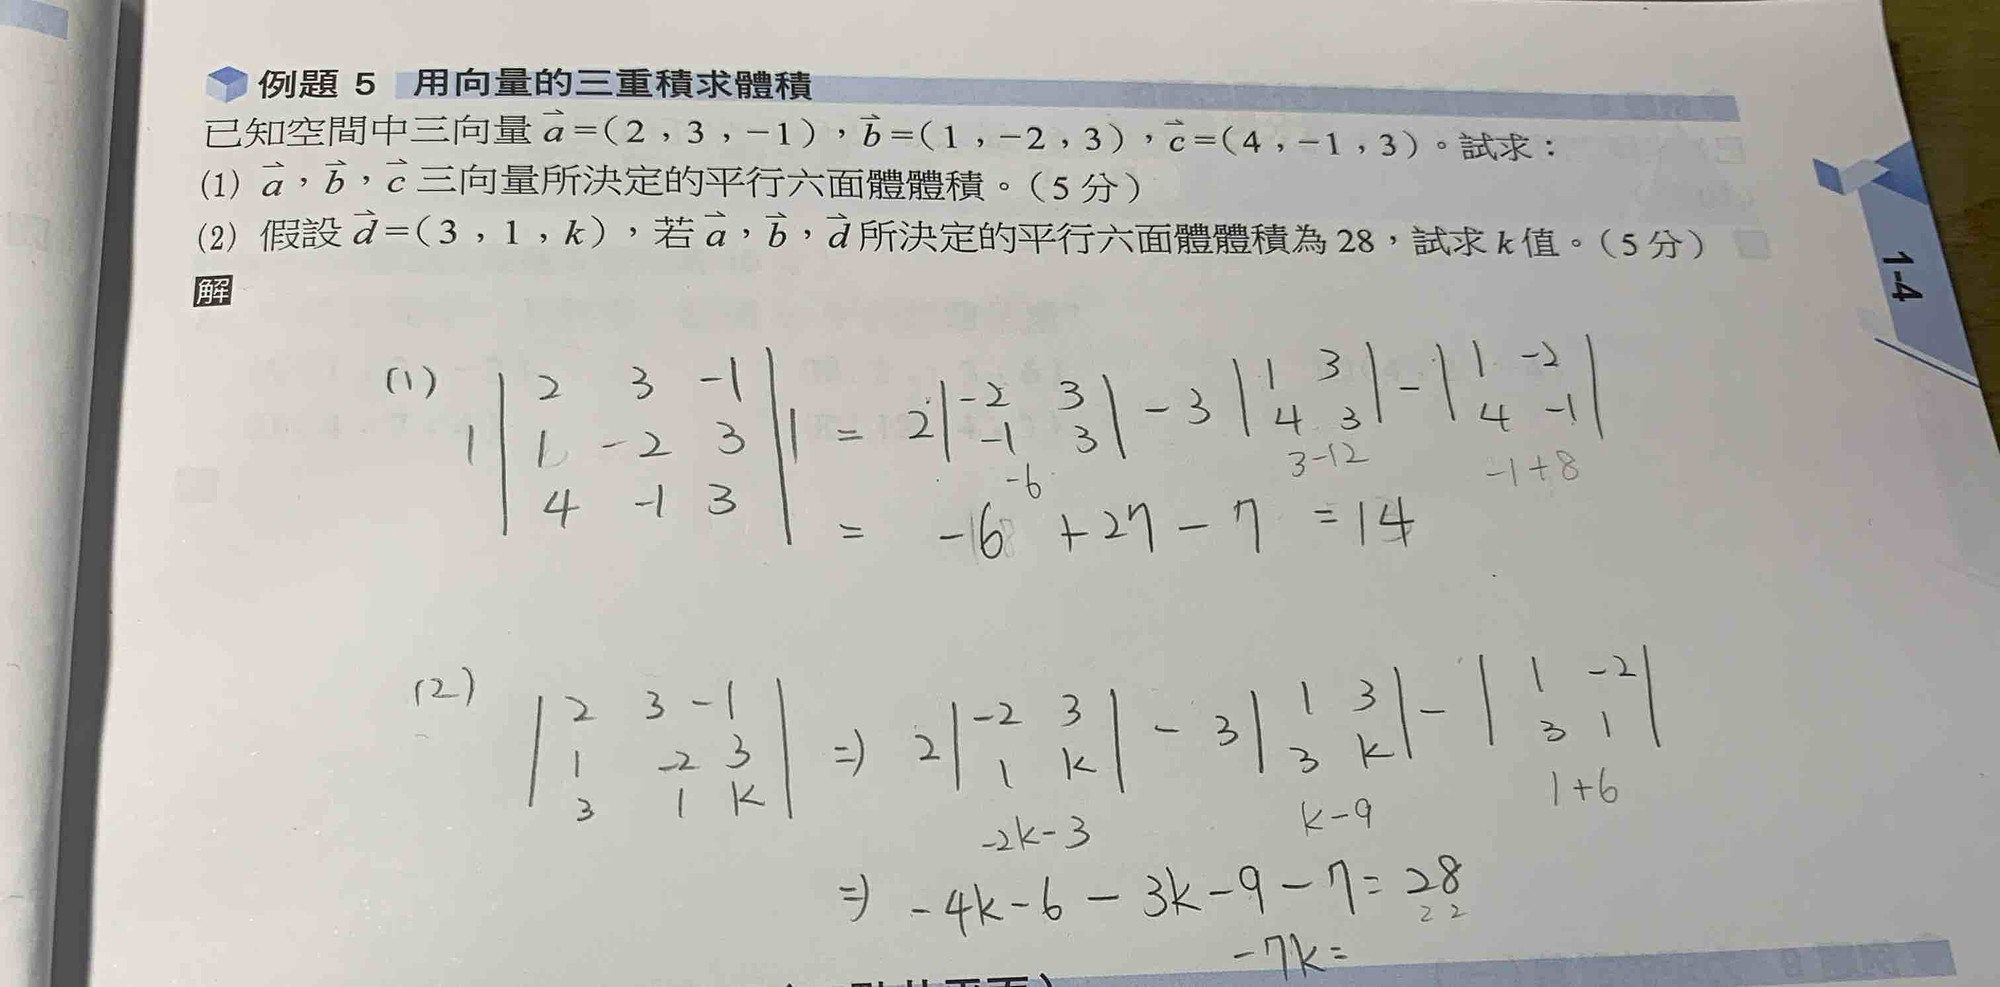 例題 5 用向量的三重積求體積
已知空間中三向量 a⃗=(2,3,-1),b⃗=(1,-2,3),c⃗=(4,-1,3)。試求:
(1) a⃗,b⃗,c⃗ 三向量所決定的平行六面體體積。(5 分)
(2) 假設 d⃗=(3,1,k),若 a⃗,b⃗,d⃗ 所決定的平行六面體體積為 28,試求 k 值。(5 分)
1-4
解
(1) | | 2 3 -1 | | = 2 | -2 3 | - 3 | 1 3 | - | 1 -2 |
| | 1 -2 3 | | | -1 3 | | 4 3 | | 4 -1 |
| | 4 -1 3 | | -6 3-12 -1+8
= -6 +27 - 7 = 14
(2) | 2 3 -1 | ⇒ 2 | -2 3 | - 3 | 1 3 | - | 1 -2 |
| 1 -2 3 | | 1 k | | 3 k | | 3 1 |
| 3 1 k | -2k-3 k-9 1+6
⇒ -4k-6 - 3k-9-7=28
22
-7k=